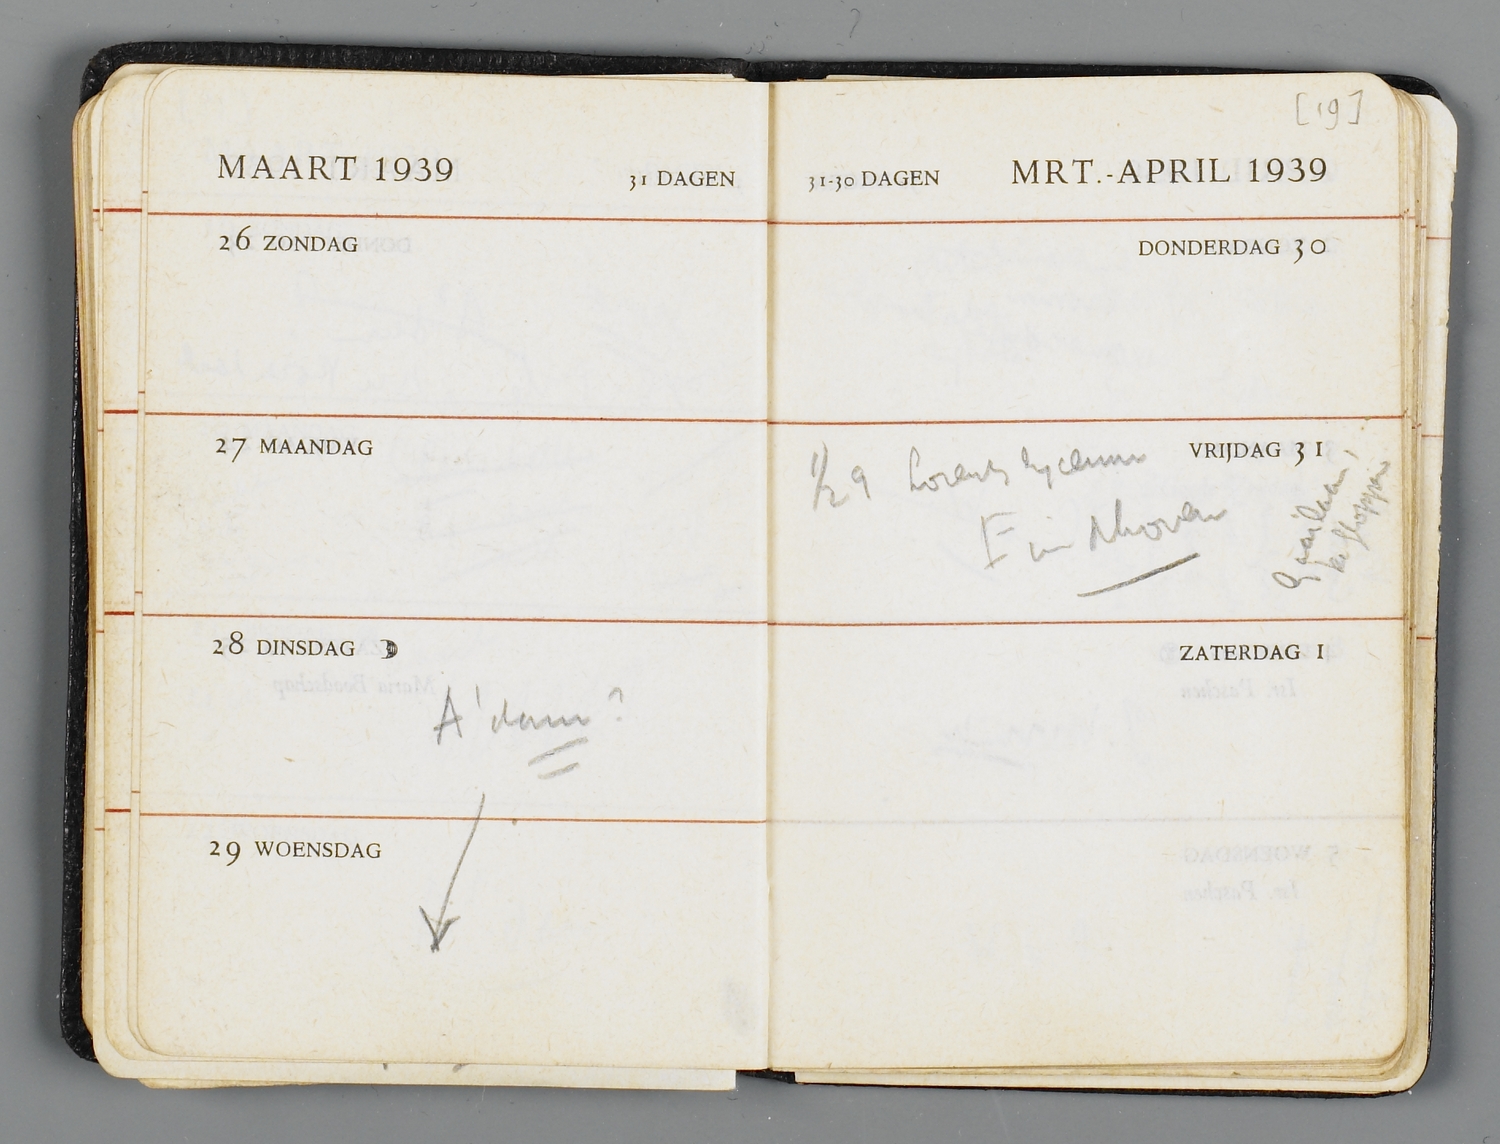 [19]
MAART 1939 31 DAGEN
26 ZONDAG
27 MAANDAG
28 DINSDAG
A'dam?
29 WOENSDAG
31-30 DAGEN MRT.-APRIL 1939
DONDERDAG 30
VRIJDAG 31
1/2 9 Lorentz lyceum
Eindhoven
ZATERDAG 1